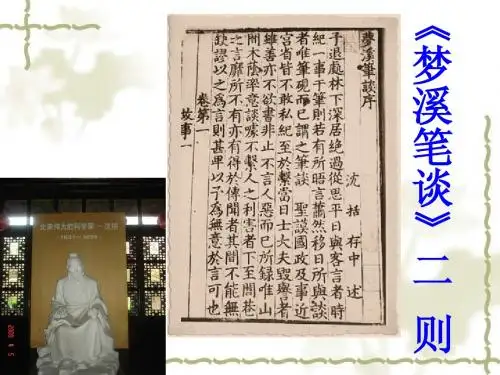 《梦溪笔谈》二则
夢溪筆談序
沈括存中述
予退處林下深居絕過從思平日與客言者時
紀一事于筆則若有所晤言蕭然移日所與談
者唯筆硯而已謂之筆談 聖謨國政及事近
宮省皆不敢私紀至於繫當日士大夫毀譽者
雖善亦不欲書非止不言人惡而已所錄唯山
間木蔭率意談噱不繫人之利害者下至閭巷
之言靡所不有亦有得於傳聞者其間不能無
缺謬以之為言則甚卑以予為無意於言可也
卷第一
故事一
北宋伟大的科学家—沈括